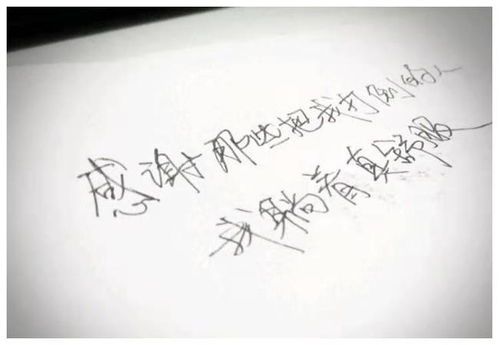 感谢那些把我打倒的人
我躺着真舒服